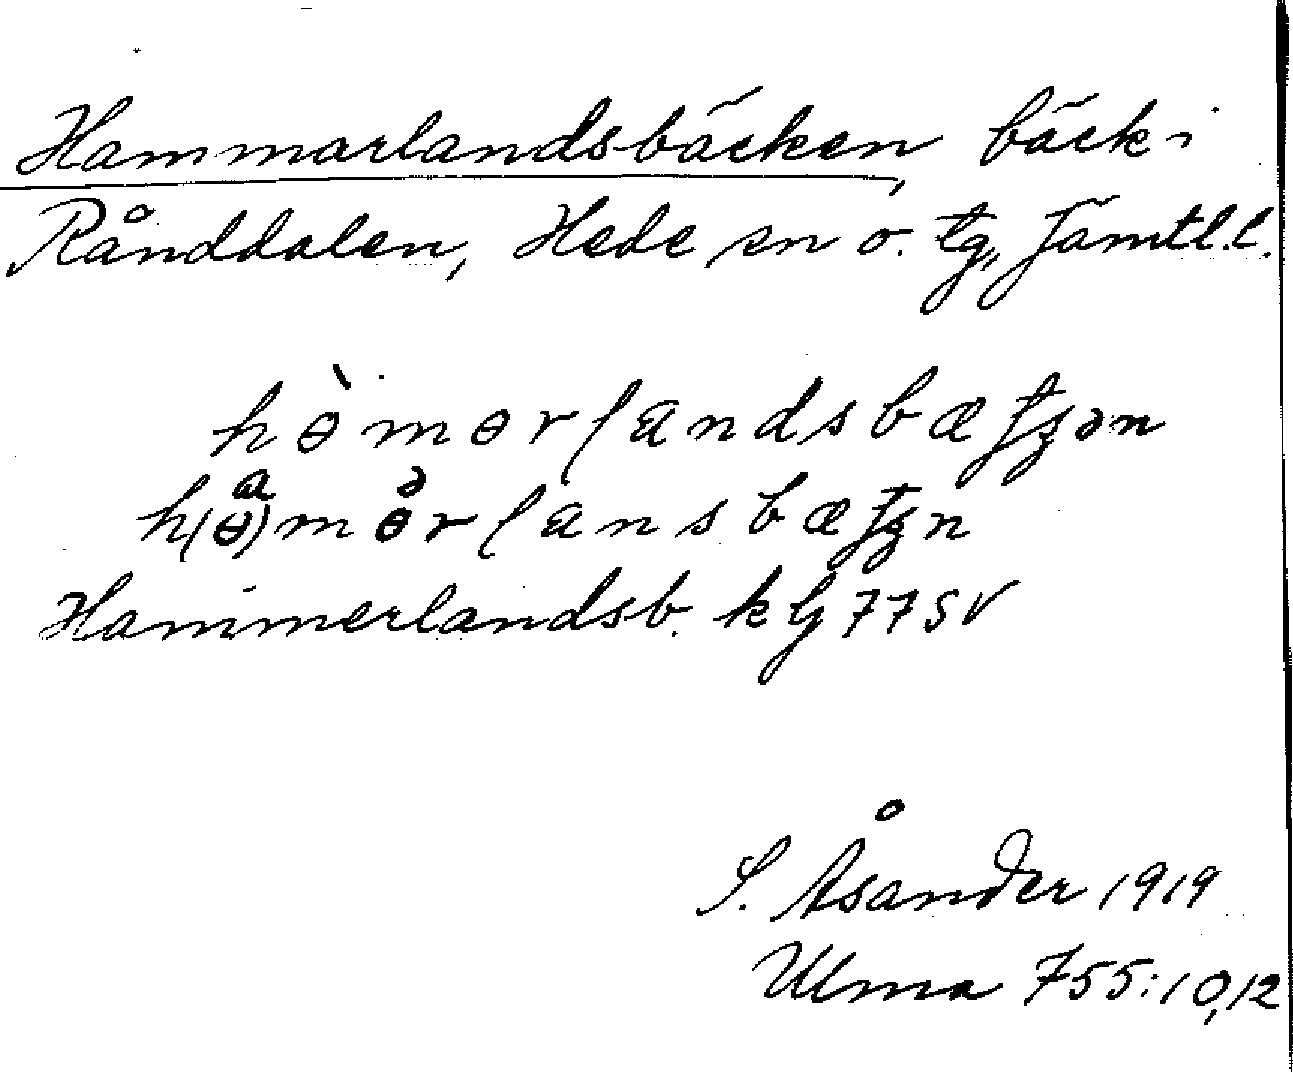 Hammarlandsbäcken, bäck i
Rånddalen, Hede sn o. tg, Jämtl. l.
hɵ̀mɵrlandsbæ
Hammerlandsb. k bg 77 SV
S. Åsander 1919
Ulma 755:10,12